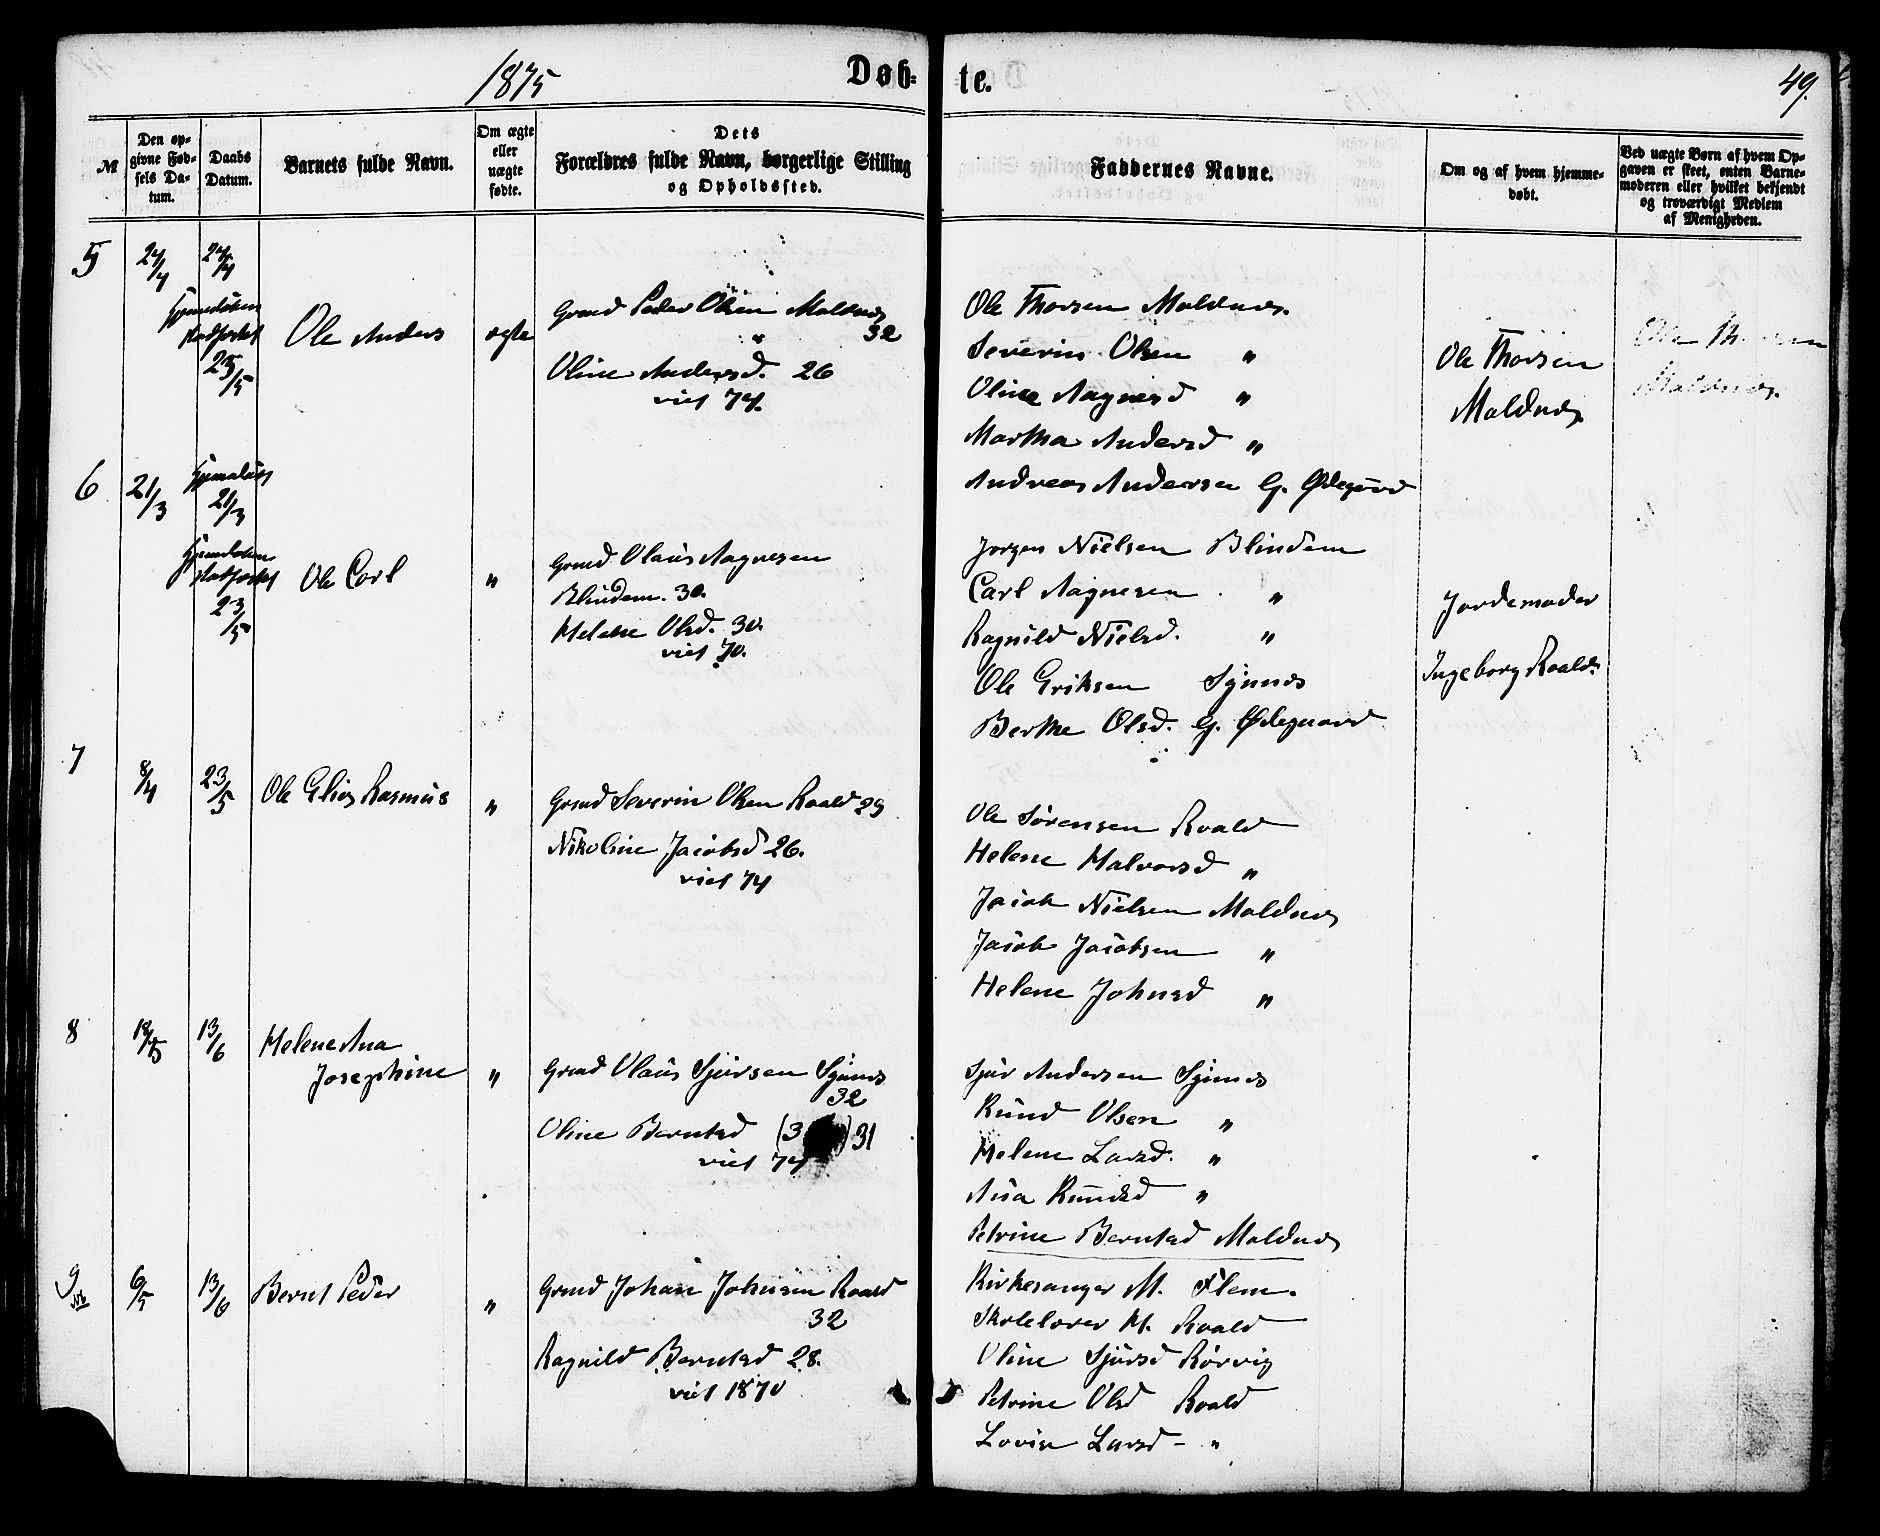 1875
Døb-
te.
49.
№
Den op-
givne Fød-
sels Da-
tum.
Daabs
Datum.
Barnets fulde Navn.
Om ægte
eller
uægte
fødte.
Dets
Forældres fulde Navn, borgerlige Stilling
og Opholdssted.
Faddernes Navne.
Om og af hvem hjemme-
døbt.
Ved uægte Børn af hvem Op-
gaven er skeet, enten Barne-
moderen eller hvilket bekjendt
og troværdigt Medlem
af Menigheden.
5
24/4
24/4
stadfæstet
23/5
Ole Anders
ægte
Grmd Peder Olsen Moldnes
32
Oline Andersd. 26
viet 74.
Ole Thorsen Moldnes.
Severin Olsen "
Oline Aagnesd "
Martha Andersd "
Andreas Andersen G. Ødegård
Ole Thorsen
Moldnes
Ole Thorsen
Moldnes.
6
21/3
Hjemedøbt
21/3
stadfæstet
23/5
Ole Carl
"
Grmd Olaus Aagnesen
Blindem. 30.
Helene Olsd. 30.
viet 70.
Jørgen Nielsen Blindem
Carl Aagnesen "
Ragnild Nielsd. "
Ole Eriksen Synnes
Berthe Olsd. G. Ødegaard
Jordemoder
Ingeborg Roald.
7
8/4
23/5
Ole Elias Rasmus
"
Grmd Severin Olsen Roald 29
Nikoline Jacobsd 26.
viet 74
Ole Sørensen Roald
Helene Halvorsd "
Jacob Nielsen Moldnes
Jacob Jacobsen "
Helene Johnsd "
8
18/5
13/6
Helene Ana
Josephine
"
Grmd Olaus Sjursen Synnes
32
Oline Berntsd (3 ) 31
viet 74
Sjur Andersen Synnes
Knud Olsen "
Helene Larsd. "
Ana Knudsd "
Petrine Berntsd Moldnes
9
6/5
13/6
Bernt Peder
"
Grmd Johan Johnsen Roald
32
Ragnild Berntsd 28.
viet 1870
Kirkesanger M. Flem.
Skolelærer H. Roald
Oline Sjursd Rørvig
Petrine Olsd Roald
Lovise Larsd - "